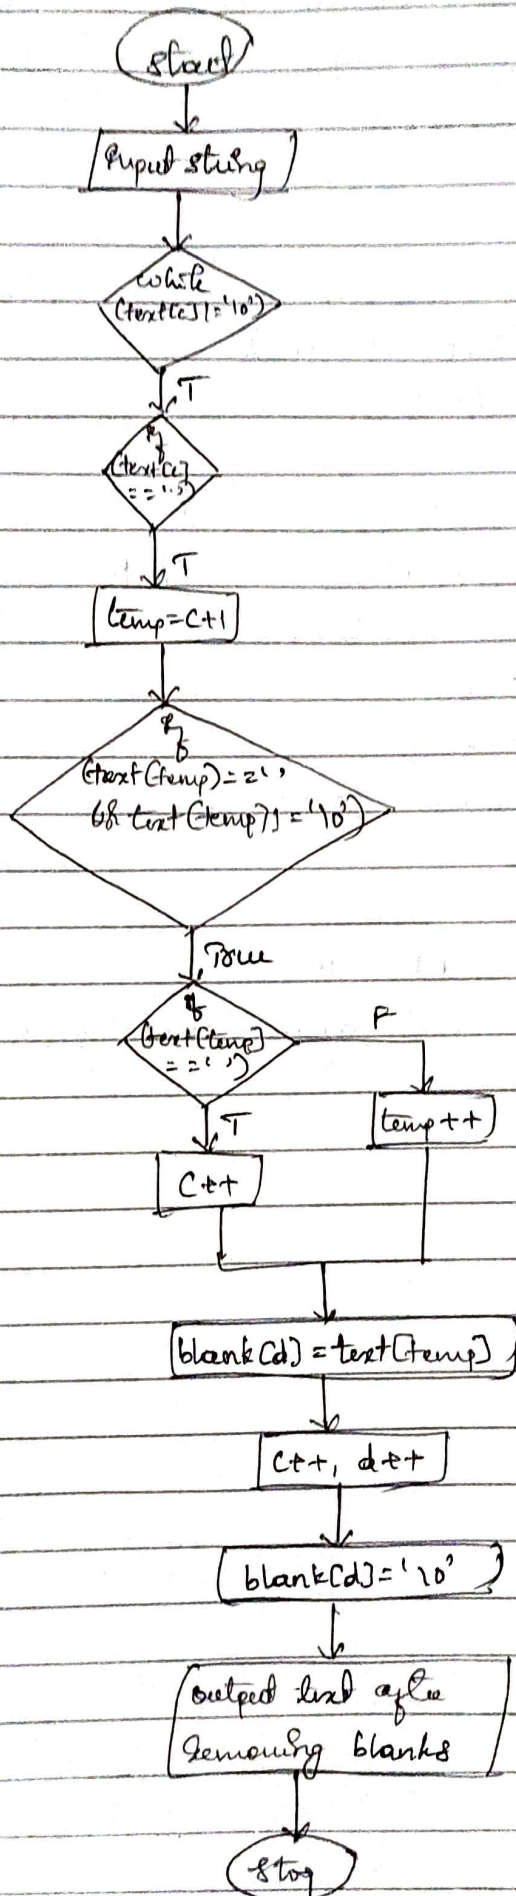 start
Input string
while
(text[c]!='\0')
T
if
(text[c]
==' ')
T
temp=c+1
if
(text[temp)==' '
&& text[temp]!='\0')
True
if
(text[temp]
==' ')
F
T
temp++
c++
blank[d]=text[temp]
c++, d++
blank[d]='\0'
output text after
removing blanks
stop